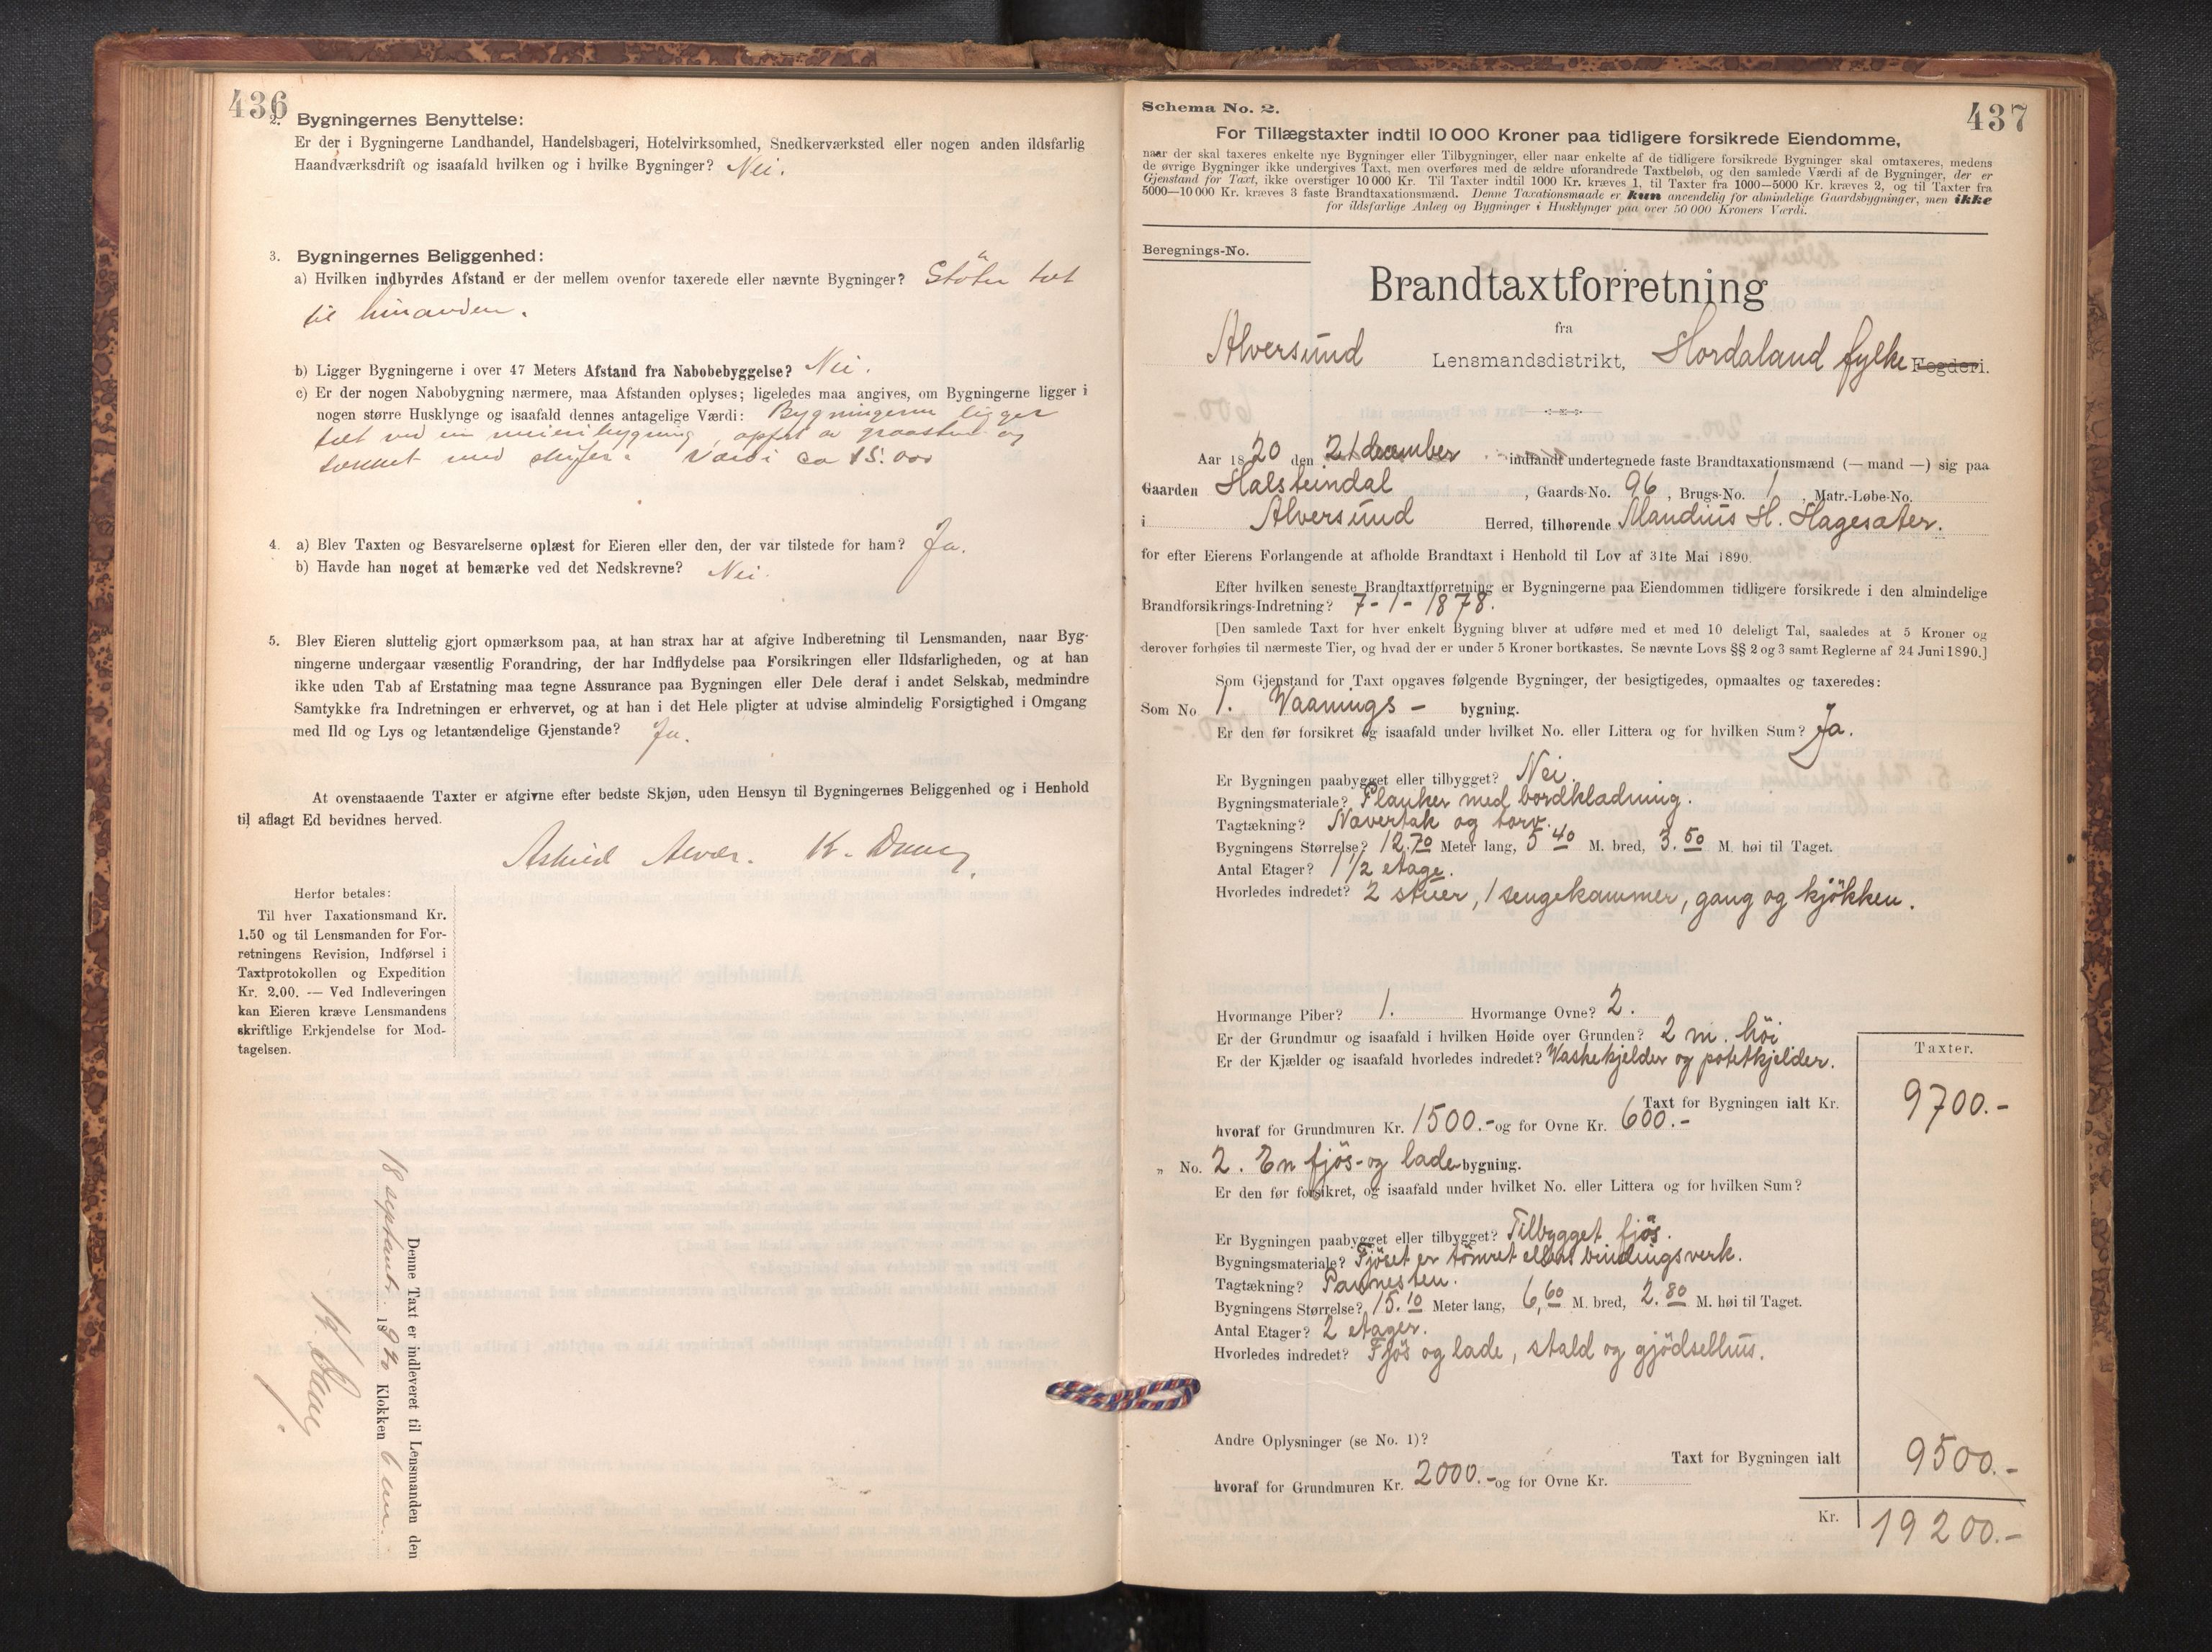 436
2. Bygningernes Benyttelse:
Er der i Bygningerne Landhandel, Handelsbageri, Hotelvirksomhed, Snedkerværksted eller nogen anden ildsfarlig
Haandværksdrift og isaafald hvilken og i hvilke Bygninger? Nei.
3. Bygningernes Beliggenhed:
a) Hvilken indbyrdes Afstand er der mellem ovenfor taxerede eller nævnte Bygninger? Stöter tæt
til hinanden.
b) Ligger Bygningerne i over 47 Meters Afstand fra Nabobebyggelse? Nei.
c) Er der nogen Nabobygning nærmere, maa Afstanden oplyses; ligeledes maa angives, om Bygningerne ligger i
nogen større Husklynge og isaafald dennes antagelige Værdi: Bygningerne ligger
tæt ved en meieribygning, opført av graasten og
tækket med skifer. Værdi ca 15.000
4. a) Blev Taxten og Besvarelserne oplæst for Eieren eller den, der var tilstede for ham? Ja.
b) Havde han noget at bemærke ved det Nedskrevne? Nei.
5. Blev Eieren sluttelig gjort opmærksom paa, at han strax har at afgive Indberetning til Lensmanden, naar Byg-
ningerne undergaar væsentlig Forandring, der har Indflydelse paa Forsikringen eller Ildsfarligheden, og at han
ikke uden Tab af Erstatning maa tegne Assurance paa Bygningen eller Dele deraf i andet Selskab, medmindre
Samtykke fra Indretningen er erhvervet, og at han i det Hele pligter at udvise almindelig Forsigtighed i Omgang
med Ild og Lys og letantændelige Gjenstande? Ja.
At ovenstaaende Taxter er afgivne efter bedste Skjøn, uden Hensyn til Bygningernes Beliggenhed og i Henhold
til aflagt Ed bevidnes herved.
Alvær. K.
Herfor betales:
Til hver Taxationsmand Kr.
1.50 og til Lensmanden for For-
retningens Revision, Indførsel i
Taxtprotokollen og Expedition
Kr. 2.00. — Ved Indleveringen
kan Eieren kræve Lensmandens
skriftlige Erkjendelse for Mod-
tagelsen.
Denne Taxt er indleveret til Lensmanden den
18 septembr. 1920 Klokken 6 em.
437
Schema No. 2.
For Tillægstaxter indtil 10 000 Kroner paa tidligere forsikrede Eiendomme,
naar der skal taxeres enkelte nye Bygninger eller Tilbygninger, eller naar enkelte af de tidligere forsikrede Bygninger skal omtaxeres, medens
de øvrige Bygninger ikke undergives Taxt, men overføres med de ældre uforandrede Taxtbeløb, og den samlede Værdi af de Bygninger, der er
Gjenstand for Taxt, ikke overstiger 10 000 Kr. Til Taxter indtil 1000 Kr. kræves 1, til Taxter fra 1000—5000 Kr. kræves 2, og til Taxter fra
5000—10 000 Kr. kræves 3 faste Brandtaxationsmænd. Denne Taxationsmaade er kun anvendelig for almindelige Gaardsbygninger, men ikke
for ildsfarlige Anlæg og Bygninger i Husklynger paa over 50 000 Kroners Værdi.
Beregnings-No.
Brandtaxtforretning
fra
Alversund Lensmandsdistrikt, Hordaland fylke Fogderi.
Aar 1820 den 21 december indfandt undertegnede faste Brandtaxationsmænd (— mand —) sig paa
Gaarden Halsteindal , Gaards-No. 96 , Brugs-No. 1 , Matr.-Løbe-No.
i Alversund Herred, tilhørende Mandius H. Hagesæter.
for efter Eierens Forlangende at afholde Brandtaxt i Henhold til Lov af 31te Mai 1890.
Efter hvilken seneste Brandtaxtforretning er Bygningerne paa Eiendommen tidligere forsikrede i den almindelige
Brandforsikrings-Indretning? 7-1-1878.
[Den samlede Taxt for hver enkelt Bygning bliver at udføre med et med 10 deleligt Tal, saaledes at 5 Kroner og
derover forhøies til nærmeste Tier, og hvad der er under 5 Kroner bortkastes. Se nævnte Lovs §§ 2 og 3 samt Reglerne af 24 Juni 1890.]
Som Gjenstand for Taxt opgaves følgende Bygninger, der besigtigedes, opmaaltes og taxeredes:
Som No 1. Vaanings- bygning.
Er den før forsikret og isaafald under hvilket No. eller Littera og for hvilken Sum? Ja.
Er Bygningen paabygget eller tilbygget? Nei.
Bygningsmateriale? Planker med bordklædning.
Tagtækning? Nævertak og torv.
Bygningens Størrelse? 12.70 Meter lang, 5 40 M. bred, 3.50 M. høi til Taget.
Antal Etager? 1 1/2 etage.
Hvorledes indredet? 2 stuer, 1 sengekammer, gang og kjökken.
Hvormange Piber? 1. Hvormange Ovne? 2.
Er der Grundmur og isaafald i hvilken Høide over Grunden? 2 m. höi
Er der Kjælder og isaafald hvorledes indredet? Vaskekjelder og potetkjelder.
Taxter.
Taxt for Bygningen ialt Kr. 9700.-
hvoraf for Grundmuren Kr. 1500.- og for Ovne Kr. 600.-
„ No. 2. En fjös- og lade bygning.
Er den før forsikret, og isaafald under hvilket No. eller Littera og for hvilken Sum?
Er Bygningen paabygget eller tilbygget? Tilbygget fjös.
Bygningsmateriale? Fjöset er tömret ellers bindingsverk.
Tagtækning? Pannesten.
Bygningens Størrelse? 15.10 Meter lang, 6,60 M. bred, 2.80 M. høi til Taget.
Antal Etager? 2 etager.
Hvorledes indredet? Fjös og lade, stald og gjödselhus.
Andre Oplysninger (se No. 1)?
Taxt for Bygningen ialt 9500.-
hvoraf for Grundmuren Kr. 2000.- og for Ovne Kr.
Kr. 19200.-